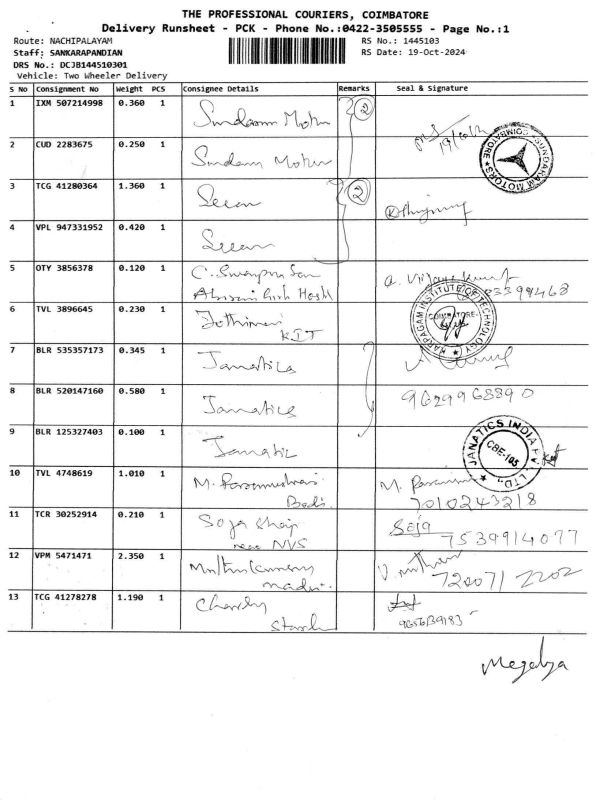 THE PROFESSIONAL COURIERS, COIMBATORE
Delivery Runsheet - PCK - Phone No.:0422-3505555 - Page No.:1
Route: NACHIPALAYAM
RS No.: 1445103
Staff: SANKARAPANDIAN
RS Date: 19-Oct-2024
DRS No.: DCJB144510301
Vehicle: Two Wheeler Delivery
S No Consignment No Weight PCS Consignee Details Remarks Seal & Signature
1 IXM 507214998 0.360 1 Sundaram Motor 2
2 CUD 2283675 0.250 1 Sundaram Motor
SUNDARAM MOTORS COIMBATORE
3 TCG 41280364 1.360 1 2
4 VPL 947331952 0.420 1
5 OTY 3856378 0.120 1
6 TVL 3896645 0.230 1 Jothimani
KIT
KARPAGAM INSTITUTE OF TECHNOLOGY
COIMBATORE
7 BLR 535357173 0.345 1 Janatics
8 BLR 520147160 0.580 1 Janatics
9629968890
9 BLR 125327403 0.100 1 Janatics
JANATICS INDIA PVT. LTD.,
CBE-105
10 TVL 4748619 1.010 1 M. Parameshwari M.
7010243218
11 TCR 30252914 0.210 1 Soja Shaji Soja
near NVS 7539914077
12 VPM 5471471 2.350 1
720071 2202
13 TCG 41278278 1.190 1
9656139183